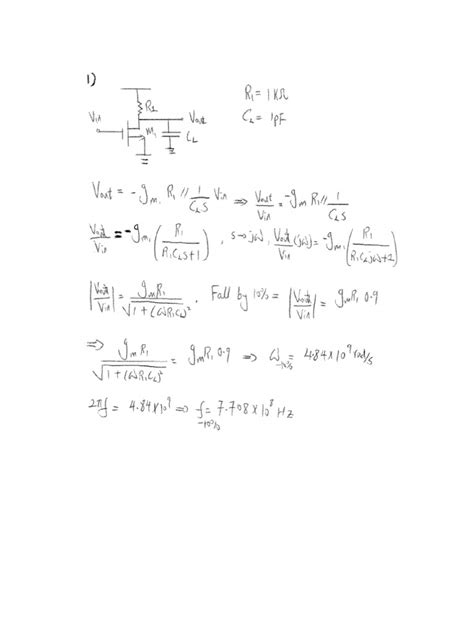 1)
R1 = 1KΩ
CL = 1pF
Vin R1 Vout
M1 CL
Vout = -gm1 R1 // 1/(CLS) Vin ⇒ Vout/Vin = -gm R1 // 1/(CLS)
Vout/Vin = -gm1 (R1/(R1CLS+1)) , s→jω, Vout/Vin (jω) = -gm1 (R1/(R1CLjω+1))
|Vout/Vin| = gmR1/√(1+(ωR1CL)²) . Fall by 10% = |Vout/Vin| = gmR1 0.9
⇒ gmR1/√(1+(ωR1CL)²) = gmR1 0.9 ⇒ ω-10% = 4.84×10⁹ rad/s
2πf = 4.84×10⁹ ⇒ f-10% = 7.708×10⁸ Hz